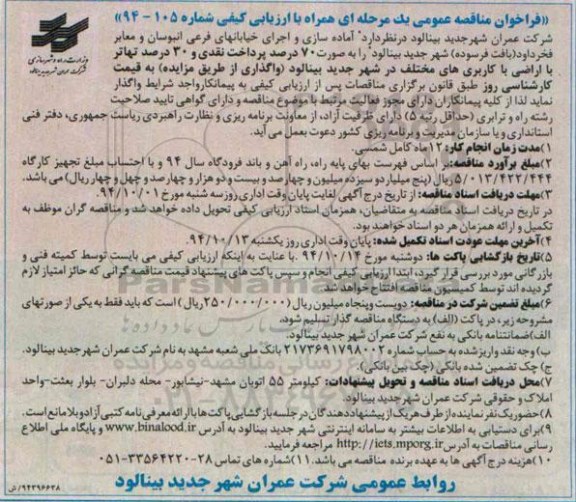 «فراخوان مناقصه عمومی یک مرحله ای همراه با ارزیابی کیفی شماره ۱۰۵ - ۹۴»
شرکت عمران شهرجدید بینالود درنظردارد" آماده سازی و اجرای خیابانهای فرعی انبوسان و معابر
فخرداود(بافت فرسوده) شهر جدید بینالود" را به صورت ۷۰ درصد پرداخت نقدی و ۳۰ درصد تهاتر
با اراضی با کاربری های مختلف در شهر جدید بینالود (واگذاری از طریق مزایده) به قیمت
کارشناسی روز طبق قانون برگزاری مناقصات پس از ارزیابی کیفی به پیمانکارواجد شرایط واگذار
نماید لذا از کلیه پیمانکاران دارای مجوز فعالیت مرتبط با موضوع مناقصه و دارای گواهی تایید صلاحیت
رشته راه و ترابری (حداقل رتبه ۵) دارای ظرفیت آزاد، از معاونت برنامه ریزی و نظارت راهبردی ریاست جمهوری، دفتر فنی
استانداری و یا سازمان مدیریت و برنامه ریزی کشور دعوت بعمل می آید.
۱)مدت زمان انجام کار: ۱۲ ماه کامل شمسی.
۲)مبلغ برآورد مناقصه: بر اساس فهرست بهای پایه راه، راه آهن و باند فرودگاه سال ۹۴ و با احتساب مبلغ تجهیز کارگاه
۵/۰۱۳/۴۲۲/۴۴۴ ریال (پنج میلیارد و سیزده میلیون و چهارصد و بیست و دو هزار و چهارصد و چهل و چهار ریال) می باشد.
۳)مهلت دریافت اسناد مناقصه: از تاریخ درج آگهی لغایت پایان وقت اداری روزسه شنبه مورخ ۹۴/۱۰/۰۱.
در تاریخ دریافت اسناد مناقصه به متقاضیان، همزمان اسناد ارزیابی کیفی تحویل داده خواهد شد و مناقصه گران موظف به
تکمیل و ارائه همزمان هر دو اسناد خواهند بود.
۴)آخرین مهلت عودت اسناد تکمیل شده: پایان وقت اداری روز یکشنبه ۹۴/۱۰/۱۳.
۵)تاریخ بازگشایی پاکت ها: دوشنبه مورخ ۹۴/۱۰/۱۴ .با عنایت به اینکه ارزیابی کیفی می بایست توسط کمیته فنی و
بازرگانی مورد بررسی قرار گیرد، ابتدا ارزیابی کیفی انجام و سپس پاکت های پیشنهاد قیمت مناقصه گرانی که حائز امتیاز لازم
گردیده اند توسط کمیسیون مناقصه افتتاح خواهد شد.
۶)مبلغ تضمین شرکت در مناقصه: دویست وپنجاه میلیون ریال (۲۵۰/۰۰۰/۰۰۰ریال) است که باید فقط به یکی از صورتهای
مشروحه زیر، در پاکت (الف) به دستگاه مناقصه گذار تسلیم شود.
الف)ضمانتنامه بانکی به نفع شرکت عمران شهر جدید بینالود.
ب) وجه نقد واریز شده به حساب شماره ۲۱۷۳۶۹۱۷۹۸۰۰۲ بانک ملی شعبه مشهد به نام شرکت عمران شهر جدید بینالود.
ج) چک تضمین شده بانکی (چک بین بانکی).
۷)محل دریافت اسناد مناقصه و تحویل پیشنهادات: کیلومتر ۵۵ اتوبان مشهد-نیشابور- محله دلبران- بلوار بعثت-واحد
املاک و حقوقی شرکت عمران شهر جدید بینالود.
۸)حضوریک نفر نماینده از طرف هریک از پیشنهاددهندگان در جلسه بازگشایی پاکت ها با ارائه معرفی نامه کتبی آزادوبلامانع است.
۹)برای دستیابی به اطلاعات بیشتر به سامانه اینترنتی شهر جدید بینالود به آدرس www.binalood.ir و پایگاه ملی اطلاع
رسانی مناقصات به آدرس http://iets.mporg.ir مراجعه فرمایید.
۱۰)هزینه درج آگهی ها به عهده برنده مناقصه می باشد. ۱۱)شماره های تماس ۲۸-۳۳۵۶۴۲۲۰-۰۵۱
روابط عمومی شرکت عمران شهر جدید بینالود